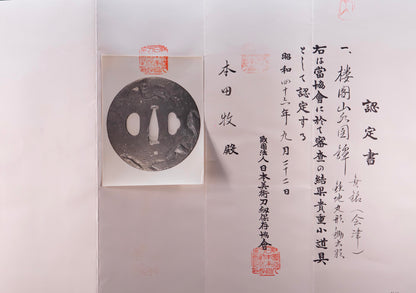 認定書
一、楼閣山水図鐔
無銘（会津）
鉄地丸形鋤出彫
右は當協會に於て審査の結果貴重小道具
として認定する
昭和四十六年九月二十二日
財團法人日本美術刀剣保存協會
本田牧殿